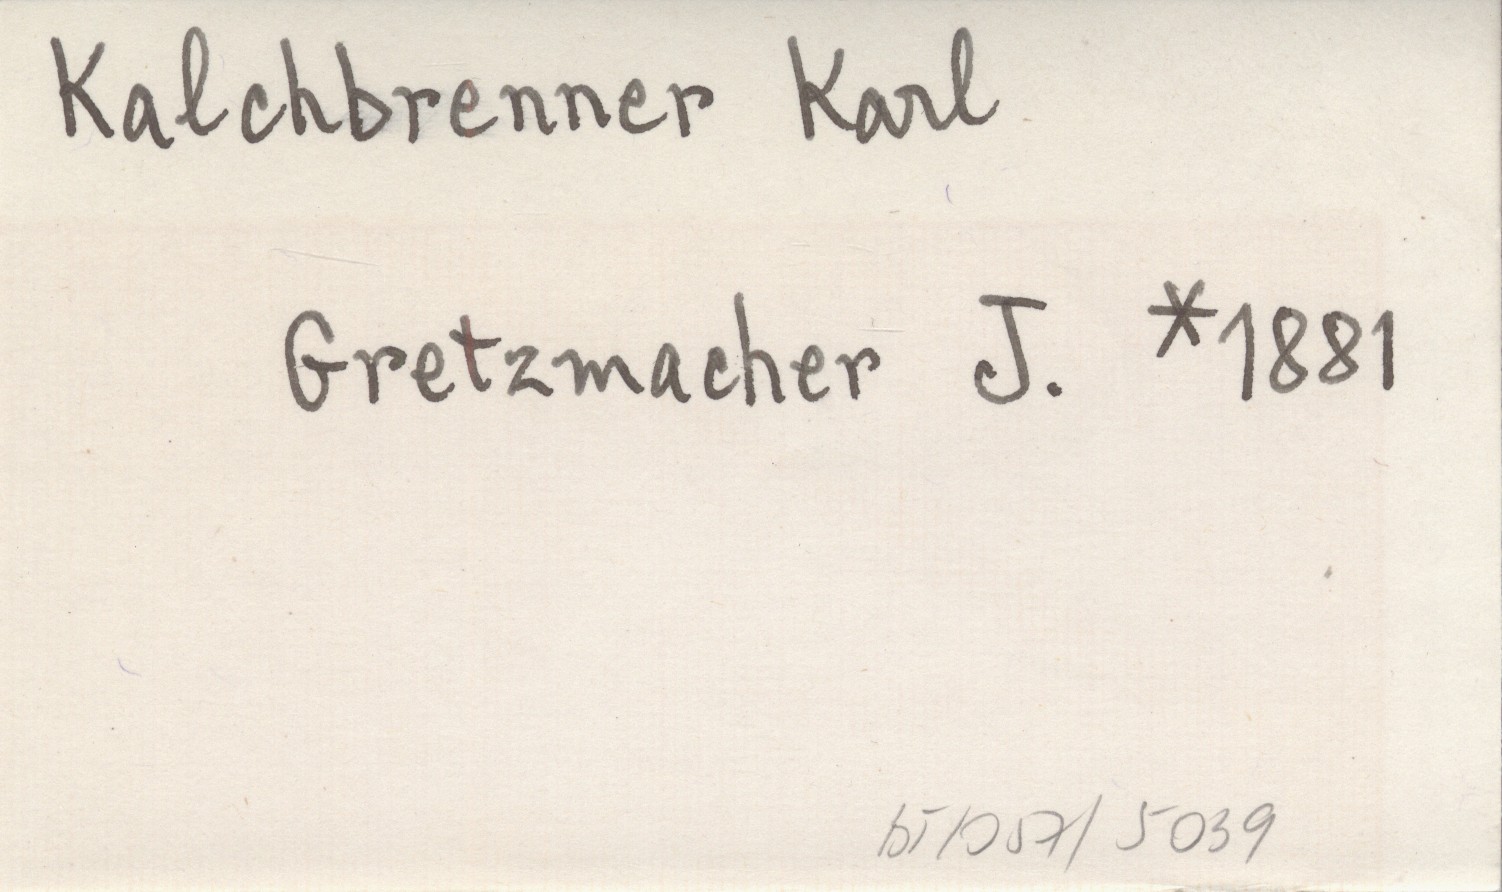 Kalchbrenner Karl
Gretzmacher J. *1881
5039